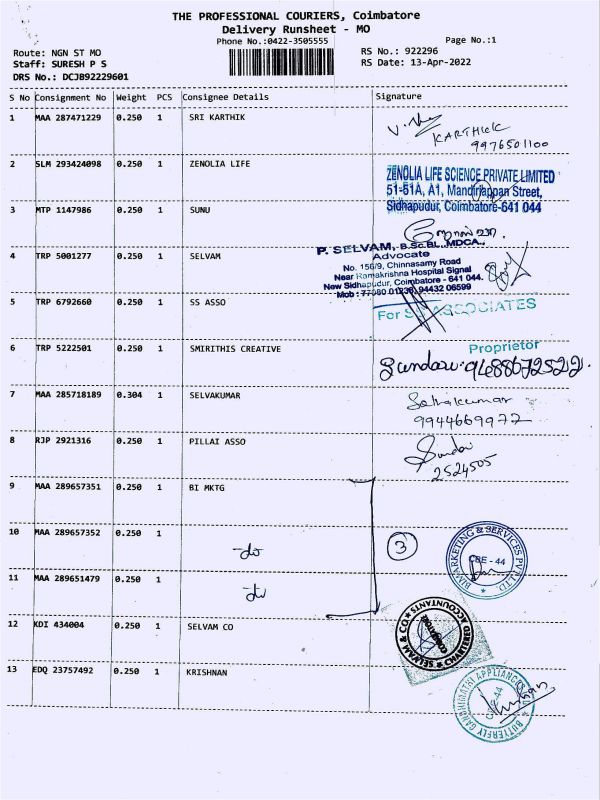 THE PROFESSIONAL COURIERS, Coimbatore
Delivery Runsheet - MO
Phone No.:0422-3505555
Page No.:1
Route: NGN ST MO
RS No.: 922296
Staff: SURESH P S
RS Date: 13-Apr-2022
DRS No.: DCJB92229601
S No Consignment No Weight PCS Consignee Details Signature
1 MAA 287471229 0.250 1 SRI KARTHIK
KARTHICK
9976501100
2 SLM 293424098 0.250 1 ZENOLIA LIFE
ZENOLIA LIFE SCIENCE PRIVATE LIMITED
51-51A, A1, Mandiriappan Street,
Sidhapudur, Coimbatore-641 044
3 MTP 1147986 0.250 1 SUNU
4 TRP 5001277 0.250 1 SELVAM
P. SELVAM, B.Sc.BL.,MDCA.,
Advocate
No. 156/9, Chinnasamy Road
Near Ramakrishna Hospital Signal
New Sidhapudur, Coimbatore - 641 044.
Mob : 77080 01236, 94432 06599
5 TRP 6792660 0.250 1 SS ASSO
For SS ASSOCIATES
Proprietor
6 TRP 5222501 0.250 1 SMIRITHIS CREATIVE
7 MAA 285718189 0.304 1 SELVAKUMAR
Selvakumar
9944669977
8 RJP 2921316 0.250 1 PILLAI ASSO
2524505
9 MAA 289657351 0.250 1 BI MKTG
10 MAA 289657352 0.250 1 -do
3
BI MARKETING & SERVICES PVT.LTD.
CBE - 44
11 MAA 289651479 0.250 1 -do
12 KDI 434004 0.250 1 SELVAM CO
SELVAM & CO. CHARTERED ACCOUNTANTS
COIMBATORE
13 EDQ 23757492 0.250 1 KRISHNAN
BUTTERFLY GANDHIMATHI APPLIANCES
CBE-44